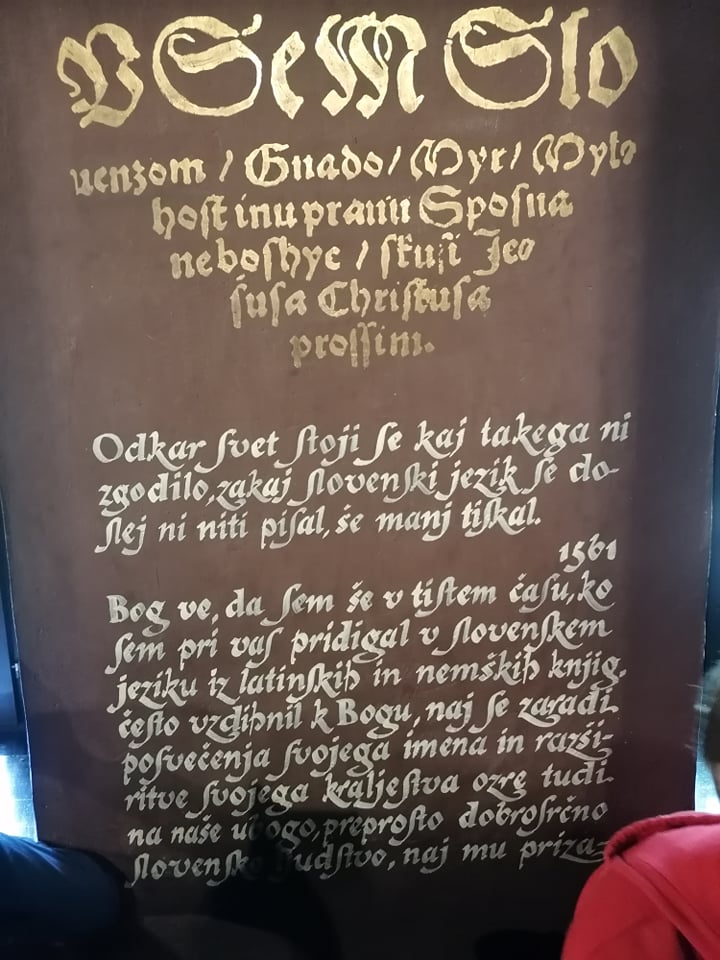 VSeM Slo
uenzom / Gnado/ Myr/ Mylo
hoſt inu prauu Spoſna
ne boshye / ſkuſi Jeo
ſuſa Chriſtuſa
proſſim.
Odkar ſvet ſtoji ſe kaj takega ni
zgodilo, zakaj ſlovenſki jezik ſe do-
ſlej ni niti piſal, še manj tiſkal.
1561
Bog ve, da ſem še v tiſtem čaſu, ko
ſem pri vaſ pridigal v ſlovenſkem
jeziku iz latinſkih in nemških knjig,
čeſto vzdihnil k Bogu, naj ſe zaradi
poſvečenja ſvojega imena in razši-
ritve ſvojega kraljeſtva ozre tudi
na naše ubogo, preproſto dobroſrčno
ſlovenſko ljudſtvo, naj mu priza-